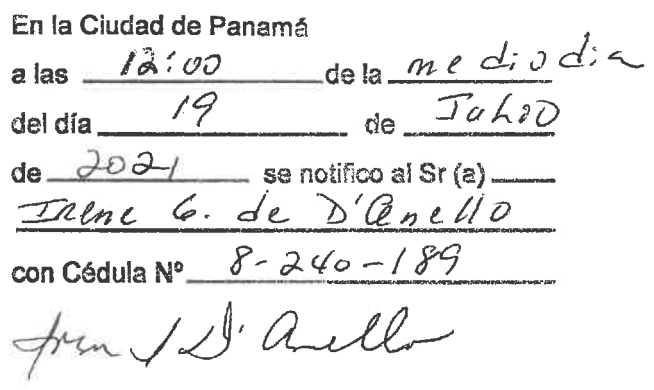 En la Ciudad de Panamá
a las 12:00 de la mediodia
del día 19 de Julio
de 2021 se notifico al Sr (a)
Irene G. de D'Anello
con Cédula Nº 8-240-189
D'Anello